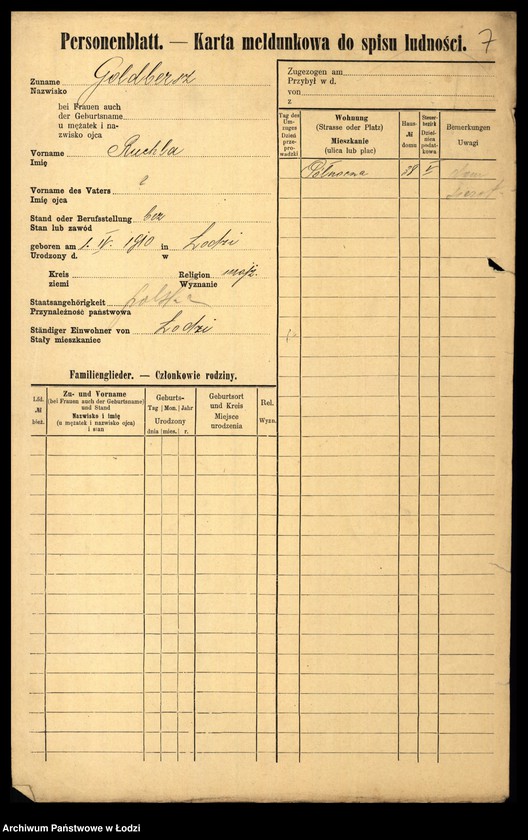 Personenblatt. — Karta meldunkowa do spisu ludności. 7
Zuname Goldbersz
Nazwisko
bei Frauen auch
der Geburtsname
u mężatek i na-
zwisko ojca
Vorname Ruchla
Imię
Vorname des Vaters
Imię ojca
Stand oder Berufsstellung bez
Stan lub zawód
geboren am 1. IV. 1910 in Łodzi
Urodzony d. w
Kreis Religion mojż.
ziemi Wyznanie
Staatsangehörigkeit polska
Przynależność państwowa
Ständiger Einwohner von Łodzi
Stały mieszkaniec
Familienglieder. — Członkowie rodziny.
Lfd. № bież.
Zu- und Vorname
(bei Frauen auch der Geburtsname)
und Stand
Nazwisko i imię
(u mężatek i nazwisko ojca)
i stan
Geburts-
Tag Mon. Jahr
Urodzony
dnia mies. r.
Geburtsort
und Kreis
Miejsce
urodzenia
Rel.
Wyzn.
Zugezogen am
Przybył w d.
von
z
Tag des
Um-
zuges
Dzień
prze-
prowadzki
Wohnung
(Strasse oder Platz)
Mieszkanie
(ulica lub plac)
Haus-
№
domu
Steuer-
bezirk
Dziel-
nica
podat-
kowa
Bemerkungen
Uwagi
Północna 38
Archiwum Państwowe w Łodzi